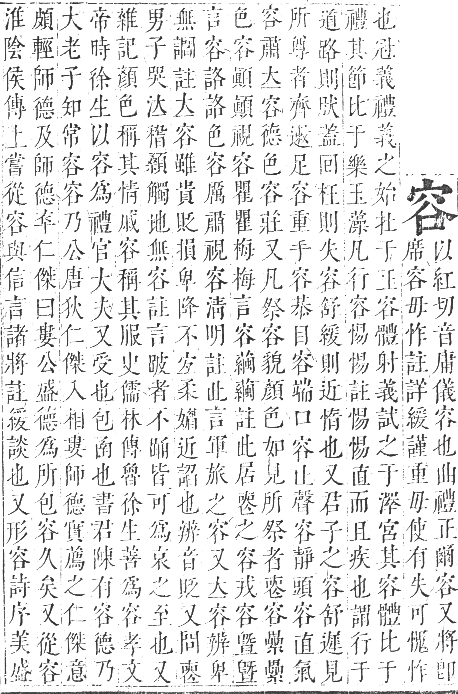 容
以紅切音庸儀容也曲禮正爾容又將即
席容毋怍註詳緩謹重毋使有失可愧怍
也冠義禮義之始在于正容體射義試之于澤宮其容體比于
禮其節比于樂玉藻凡行容惕惕註惕惕直而且疾也謂行于
道路則然蓋回枉則失容舒緩則近惰也又君子之容舒遲見
所尊者齊遬足容重手容恭目容端口容止聲容靜頭容直氣
容肅立容德色容莊又凡祭容貌顏色如見所祭者喪容纍纍
色容顛顛視容瞿瞿梅梅言容繭繭註此居喪之容戎容曁曁
言容詻詻色容厲肅視容清明註此言軍旅之容又立容辨卑
無讇註立容雖貴貶損卑降不妄柔媚近諂也辨音貶又問喪
男子哭泣稽顙觸地無容註言跛者不踊皆可爲哀之至也又
雜記顏色稱其情戚容稱其服史儒林傳魯徐生善爲容孝文
帝時徐生以容爲禮官大夫又受也包函也書君陳有容德乃
大老子知常容容乃公唐狄仁傑入相婁師德實薦之仁傑意
頗輕師德及師德卒仁傑曰婁公盛德爲所包容久矣又從容
淮陰侯傳上嘗從容與信言諸將註緩談也又形容詩序美盛